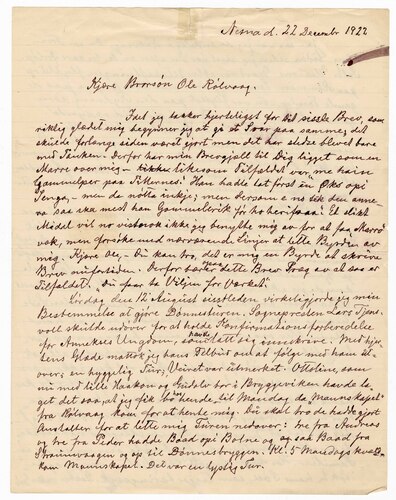 Nesna d. 22 December 1922
Kjere Brorsön Ole Rölvaag.
Idet jeg takker hjerteligst for dit sidste Brev, som
riktig glædet mig begynner jeg at gi et Svar paa samme, det
skulde forlængst siden været gjort men det har altid blevet bare
med Tanken. Derfor har min Brevgjæld til Dig ligget som en
Marre over mig – likesom Tilfældet var me hain
Gammelper paa Tilrenes. Han hadde lat först en Öks opi
Senga, – men de nötta inkje; men dersom e no fik den annen
na saa ska mest han Gammelerik för ho ber faai. Et slikt
Middel vil no vistnok ikke jeg benytte mig av for at faa Marren
væk, men forsöke med nærværende Linjer at lette Byrden av
mig. Kjere Ole, – Du kan tro, det er mig en Byrde at skrive
Brev nu for tiden. Derfor bærer dette Brev Præg av at saa er
Tilfældet. Du faar ta Viljen for Verket.
Lördag den 12 August sidstleden virkeliggjorde jeg min
Bestemmelse at gjöre Dönnesturen. Sognepresten Lars Tjens-
voll skulde utover for at holde Konfirmationsforberedelse
for Annekses Ungdom, som havde latt sig innskrive. Med hjer-
tens Glæde mottok jeg hans Tilbud om at følge med ham ut-
over; en hyggelig Tur; Veiret var utmerket. Ottoline, som
nu med lille Haakon og Gudolv bor i Bryggeviken havde la-
get det saa, at jeg fik bo hende til Mandag da Mannskapet
fra Rölvaag kom for at hente mig. Du skal tro de hadde gjort
Anstalter for at lette mig Turen nedover: tre fra Andreas
og tre fra Peder hadde Baad opi Botne og og saa Baad fra
Straumvaagen og op til Dönnesbryggen. Kl. 5 Mandags kvæld
kom Mannskapet. Det var en lystig Tur.